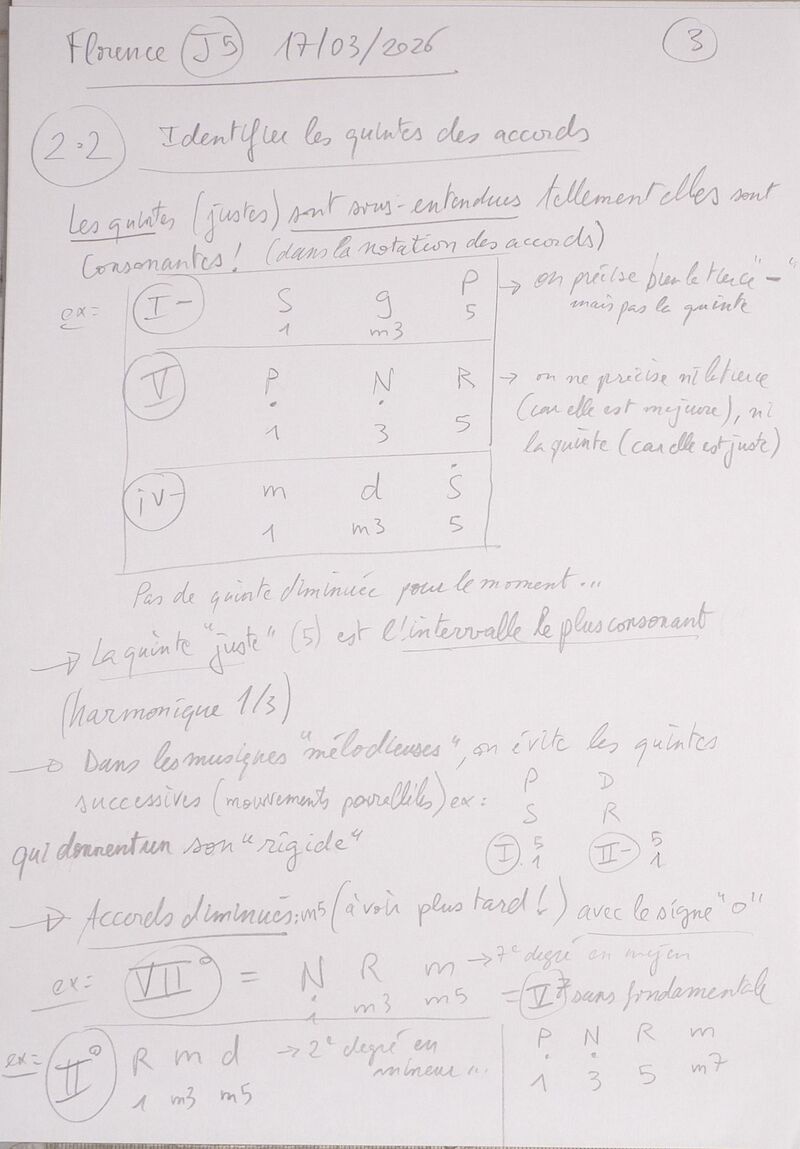 Florence J5 17/03/2026 3
2.2 Identifier les quintes des accords
Les quintes (justes) sont sous-entendues tellement elles sont
consonantes! (dans la notation des accords)
ex: I- S g P → on précise bien la tierce "-"
1 m3 5 mais pas la quinte
V P N R → on ne précise ni la tierce
(car elle est majeure), ni
1 3 5 la quinte (car elle est juste)
iv- m d S
1 m3 5
Pas de quinte diminuée pour le moment...
→ La quinte "juste" (5) est l'intervalle le plus consonant
(harmonique 1/3)
→ Dans les musiques "mélodieuses", on évite les quintes
successives (mouvements parallèles) ex: P D
S R
qui donnent un son "rigide" I 5 1 II- 5 1
→ Accords diminués: m5 (à voir plus tard!) avec le signe "o"
ex: VII° = N R m → 7e degré en majeur
1 m3 m5 = V7 sans fondamentale
ex: II° R m d → 2e degré en mineur...
1 m3 m5
P N R m
1 3 5 m7